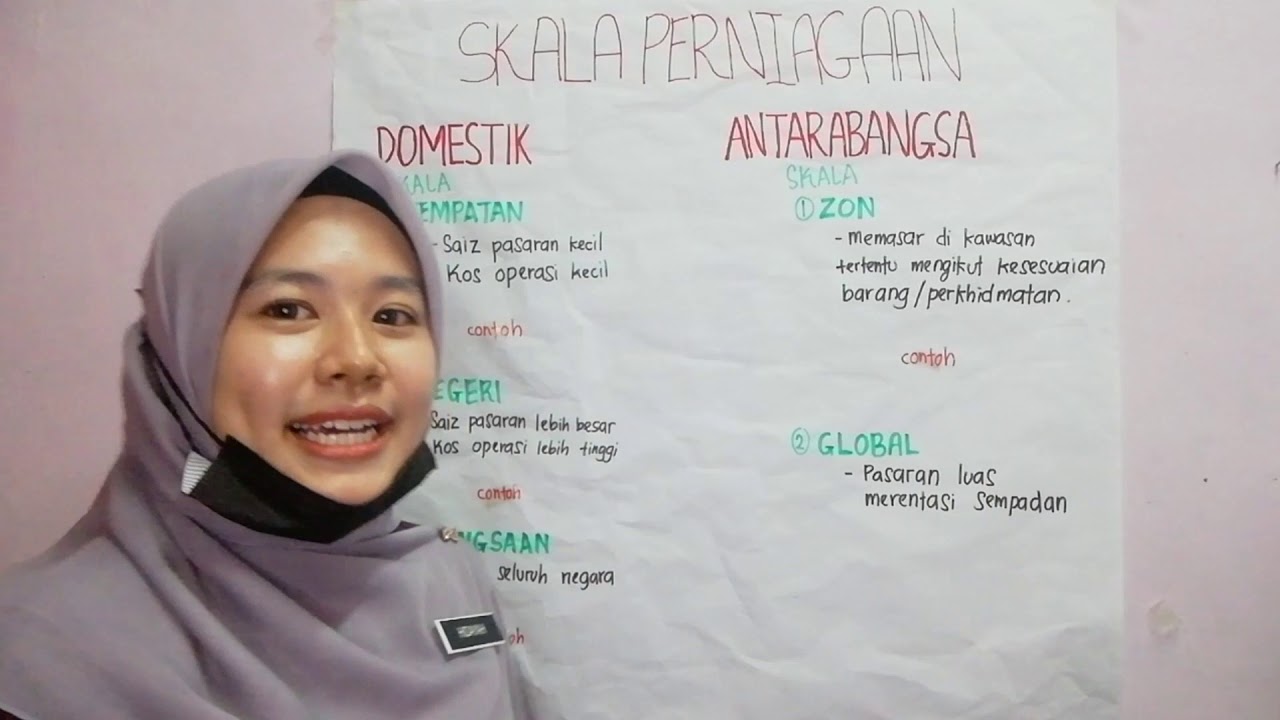 SKALA PERNIAGAAN
DOMESTIK
KALA
EMPATAN
- Saiz pasaran kecil
Kos operasi kecil
contoh
EGERI
Saiz pasaran lebih besar
Kos operasi lebih tinggi
contoh
NGSAAN
seluruh negara
oh
ANTARABANGSA
SKALA
① ZON
- memasar di kawasan
tertentu mengikut kesesuaian
barang/perkhidmatan.
contoh
② GLOBAL
- Pasaran luas
merentasi sempadan